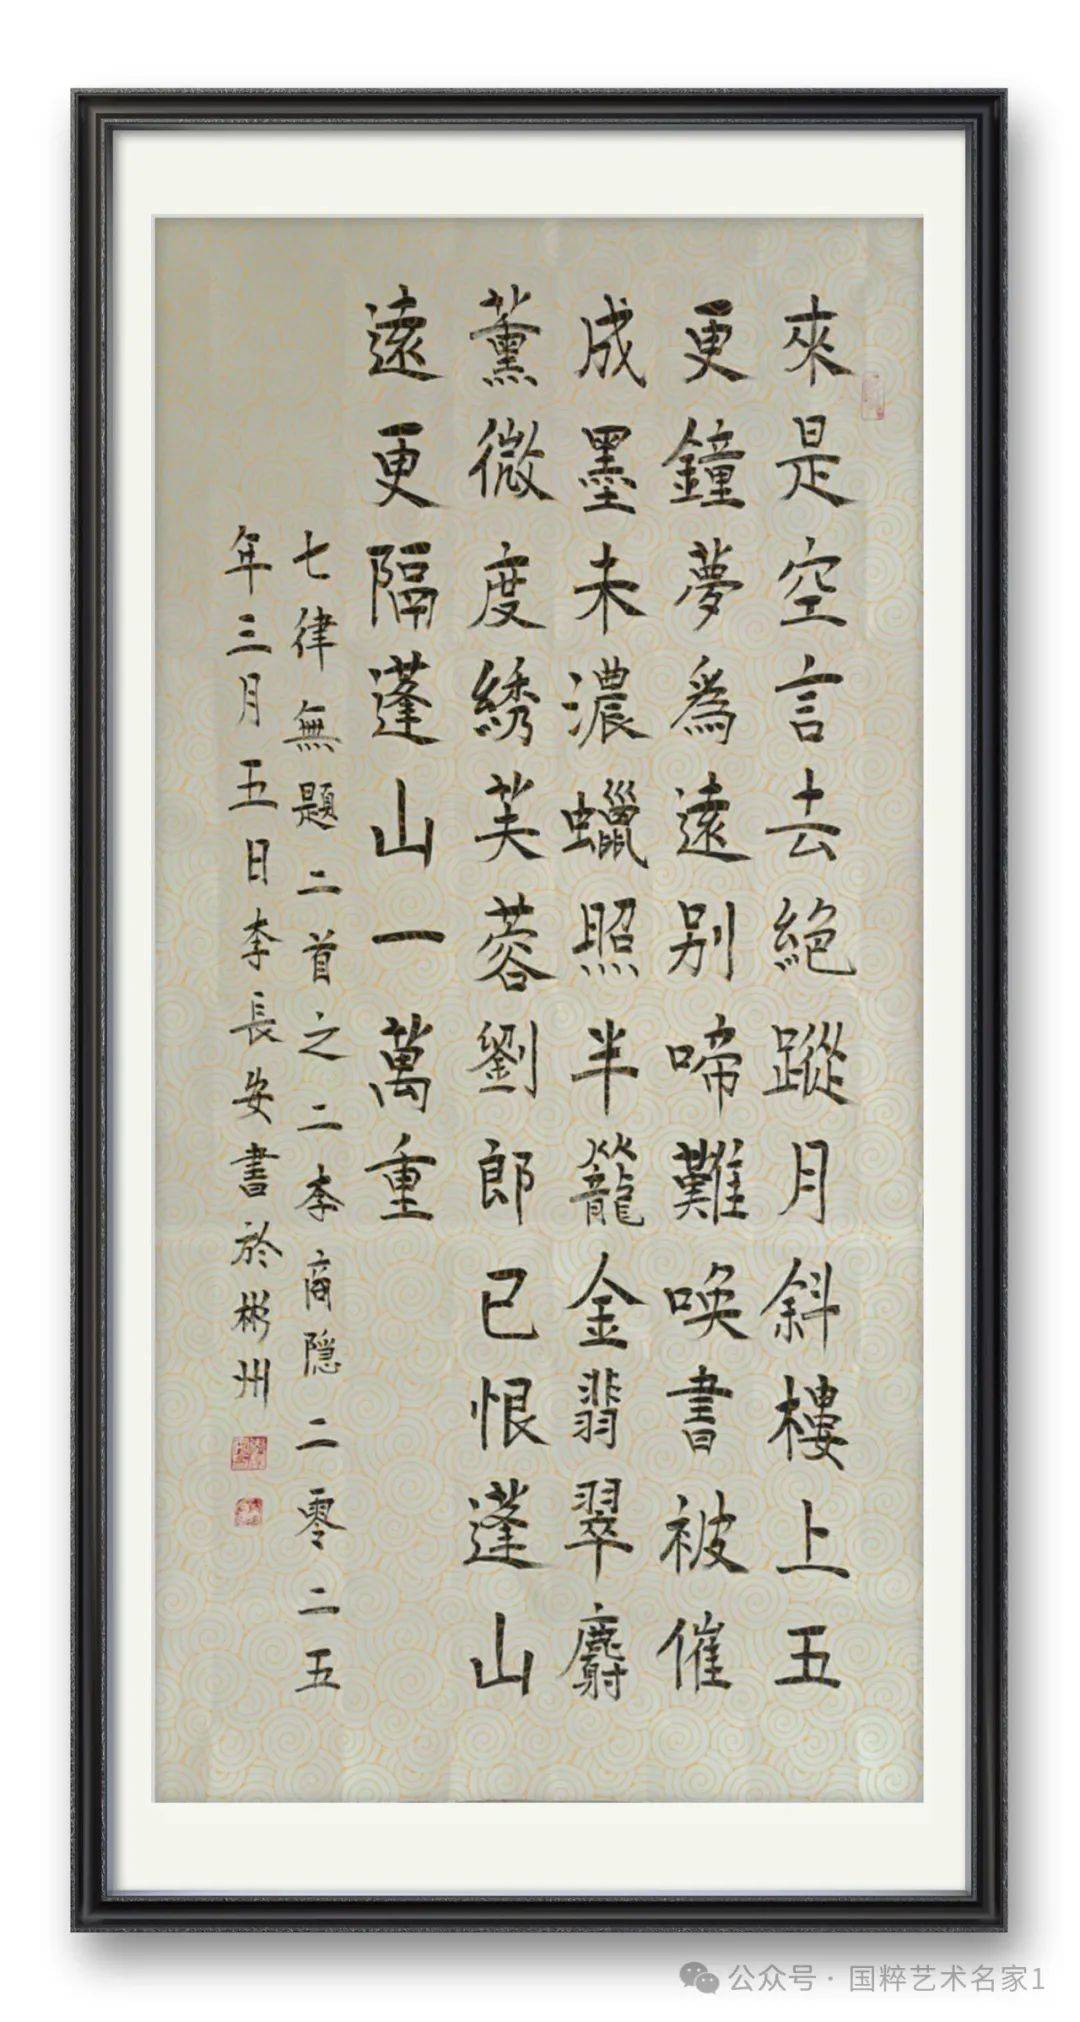 來是空言去絕蹤月斜樓上五
更鐘夢為遠别啼難唤書被催
成墨未濃蠟照半籠金翡翠麝
薰微度綉芙蓉劉郎已恨蓬山
遠更隔蓬山一萬重
七律無題二首之二李商隐二零二五
年三月五日李長安書於彬州
公众号·国粹艺术名家1